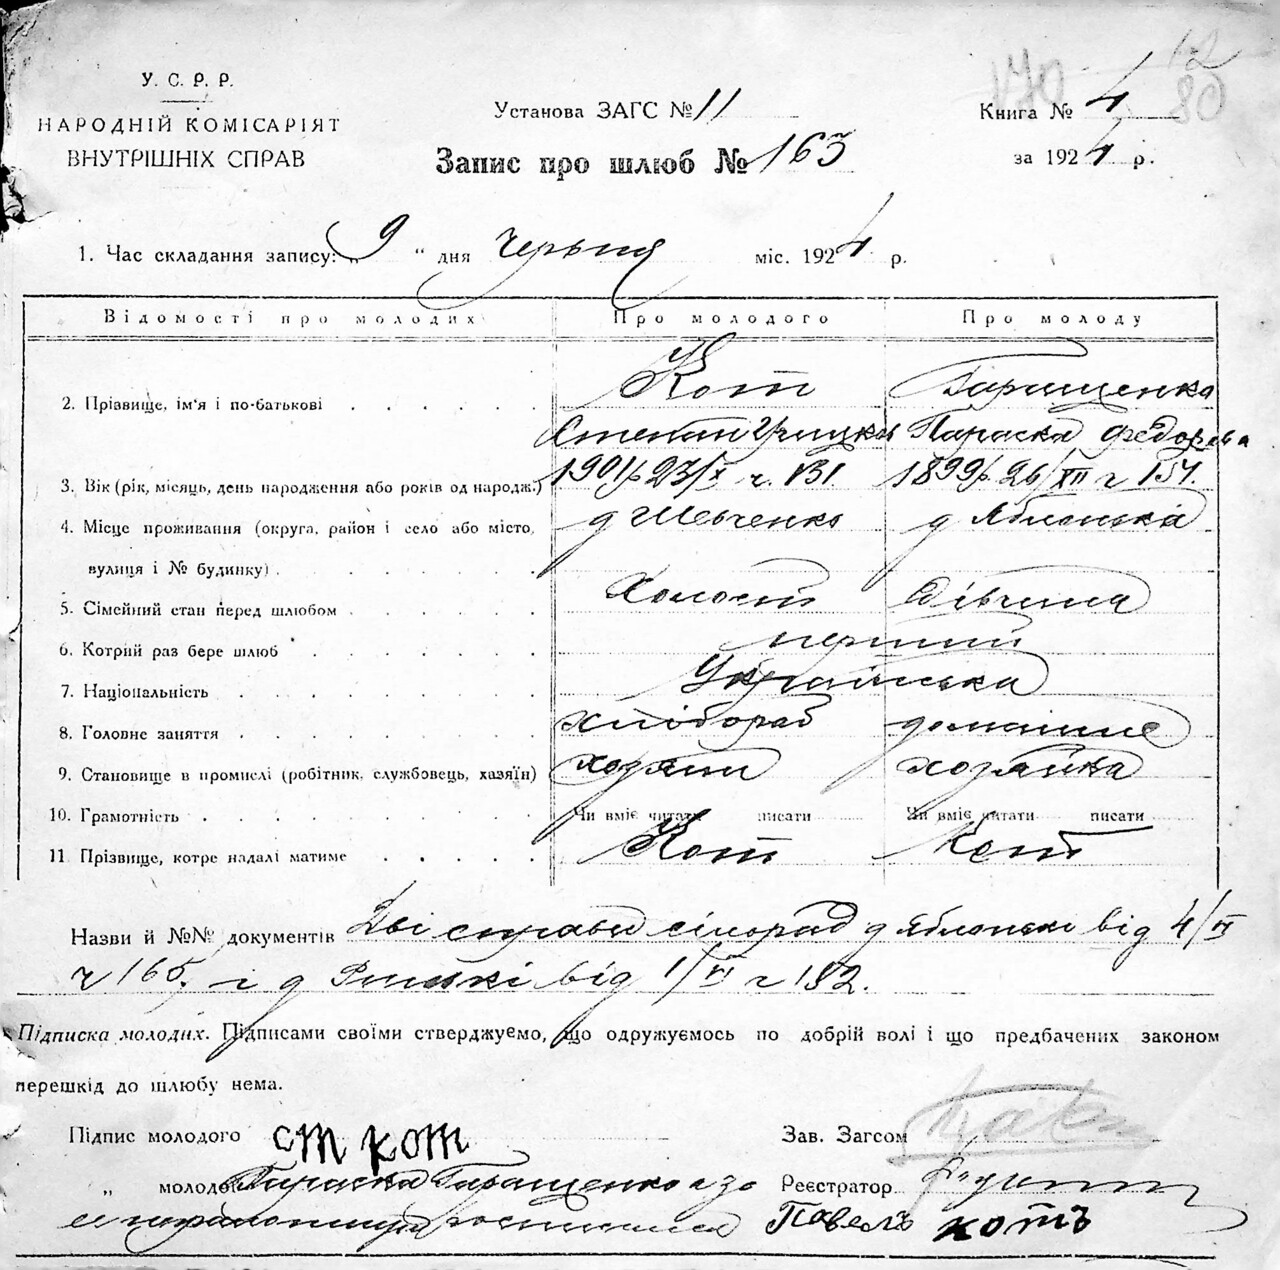 170 12
80
У. С. Р. Р.
НАРОДНІЙ КОМІСАРІЯТ
ВНУТРІШНІХ СПРАВ
Установа ЗАГС № 11
Запис про шлюб № 163
Книга № 4
за 1924 р.
1. Час складання запису: „ 9 “ дня Червня міс. 1924 р.
Відомості про молодих Про молодого Про молоду
2. Прізвище, ім'я і по-батькові Кот Гаращенко
Степан Параска Федорова
3. Вік (рік, місяць, день народження або років од народж.) 1901 р 23/X ч. 131. 1899 р. 26/XII ч 154.
4. Місце проживання (округа, район і село або місто, д Шевченко д Яблонька
вулиця і № будинку)
5. Сімейний стан перед шлюбом Холост Дівчина
6. Котрий раз бере шлюб перший
7. Національність Українська
8. Головне заняття хлібороб домашнє
9. Становище в промислі (робітник, службовець, хазяїн) хозяин хозяйка
10. Грамотність Чи вміє читати писати Чи вміє читати писати
11 Прізвище, котре надалі матиме Кот Кот
Назви й №№ документів Дві справки сілорад д Яблонькі від 4/VI
ч 165. і д від 1/VI ч 182.
Підписка молодих. Підписами своїми стверджуємо, що одружуємось по добрій волі і що предбачених законом
перешкід до шлюбу нема.
Підпис молодого ст кот Зав. Загсом
„ молодої Параска Гаращенко а за Реєстратор
ее неграмотную росписался Павелъ котъ